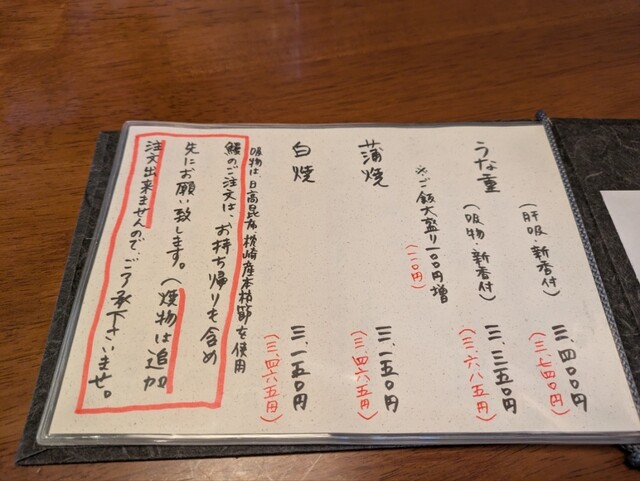 (肝吸・新香付) 三、四〇〇円
(三、七四〇円)
うな重 (吸物・新香付) 三、三五〇円
(三、六八五円)
※ご飯大盛り一〇〇円増
(一一〇円)
蒲焼 三、一五〇円
(三、四六五円)
白焼 三、一五〇円
(三、四六五円)
吸物は、日高昆布、枕崎産本枯節を使用
鰻のご注文は、お持ち帰りも含め
先にお願い致します。(焼物は追加
注文出来ませんので、ご了承下さいませ。